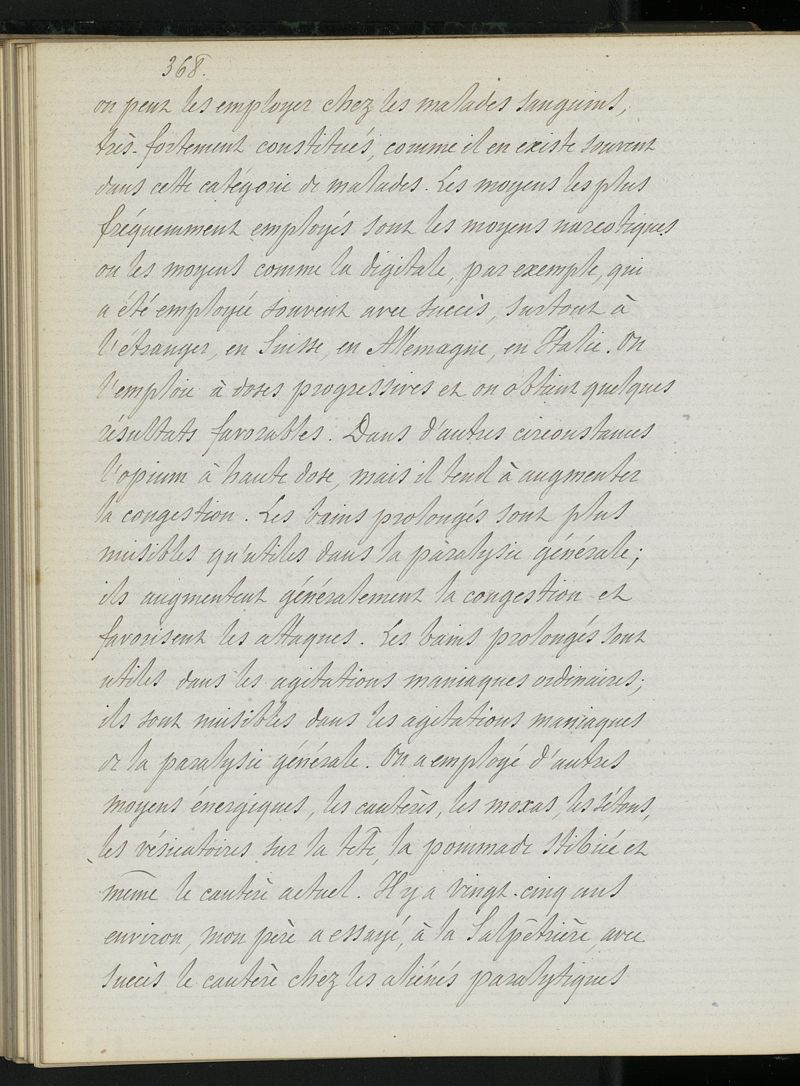 368.
on peut les employer chez les malades sanguins,
très-fortement constitués, comme il en existe souvent
dans cette catégorie de malades. Les moyens les plus
fréquemment employés sont les moyens narcotiques
ou les moyens comme la digitale, par exemple, qui
a été employée souvent avec succès, surtout à
l'étranger, en Suisse, en Allemagne, en Italie. On
l'emploie à doses progressives et on obtient quelques
résultats favorables. Dans d'autres circonstances
l'opium à haute dose, mais il tend à augmenter
la congestion. Les bains prolongés sont plus
nuisibles qu'utiles dans la paralysie générale;
ils augmentent généralement la congestion et
favorisent les attaques. Les bains prolongés sont
utiles dans les agitations maniaques ordinaires;
ils sont nuisibles dans les agitations maniaques
de la paralysie générale. On a employé d'autres
moyens énergiques, les cautères, les moxas, les sétons,
les vésicatoires sur la tête, la pommade stibiée et
même le cautère actuel. Il y a vingt-cinq ans
environ, mon père a essayé, à la Salpêtrière, avec
succès le cautère chez les aliénés paralytiques